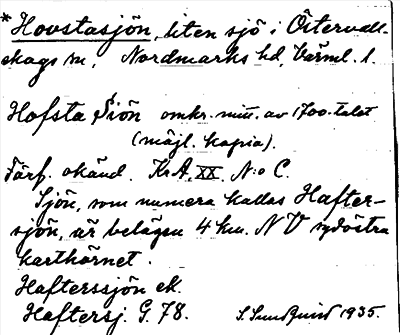 * Hovstasjön, liten sjö i Östervall-
skogs sn, Nordmarks hd, Värml. l.
Hofsta Siön omkr. mitt. av 1700-talet
(möjl. kopia).
Förf. okänd. Kr.A. XX. N:o C.
Sjön, som numera kallas Hafter-
sjön, är belägen 4 km. NV sydöstra
karthörnet.
Hafterssjön ek.
Haftersj. G. 78. S. Sundquist 1935.